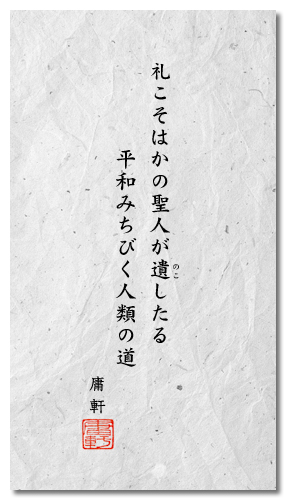 礼こそはかの聖人が遺したる
のこ
平和みちびく人類の道
庸軒
庸軒